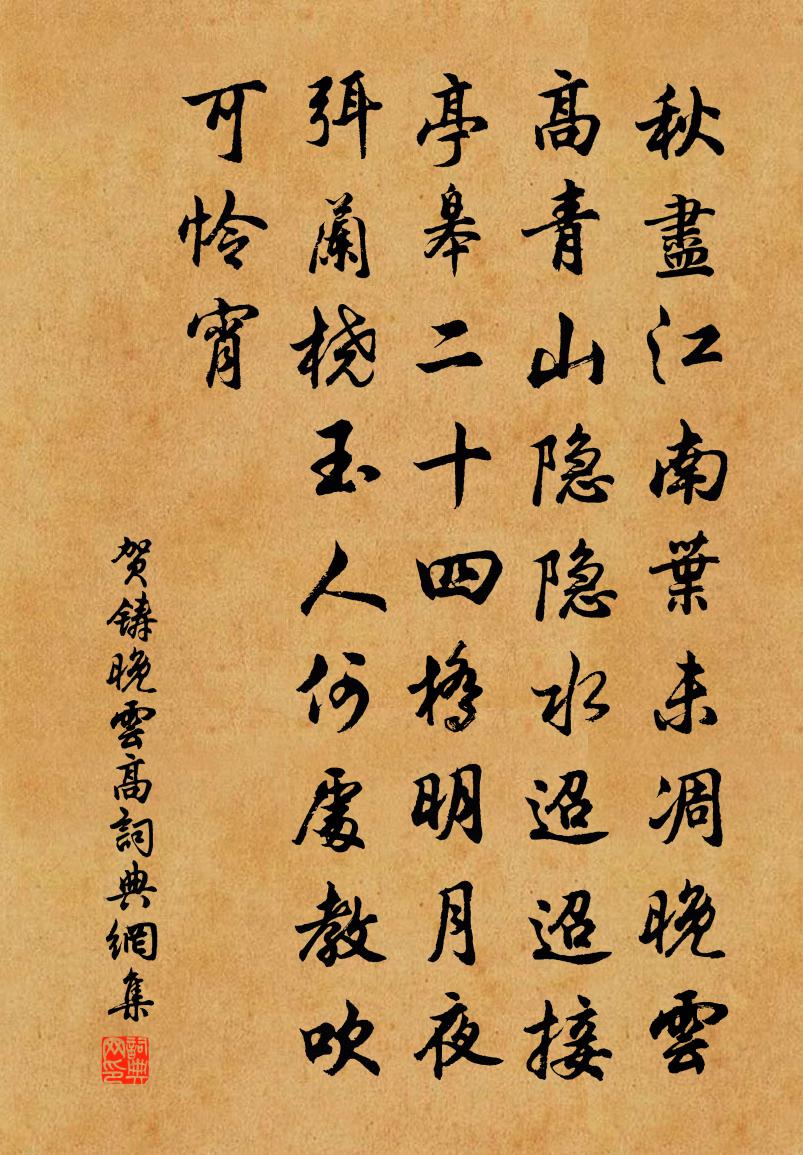 秋盡江南葉未凋晚雲
高青山隐隐水迢迢接
亭皋二十四橋明月夜
弭蘭桡玉人何處教吹
可怜宵
贺鑄晚雲高詞典網集
詞典网印